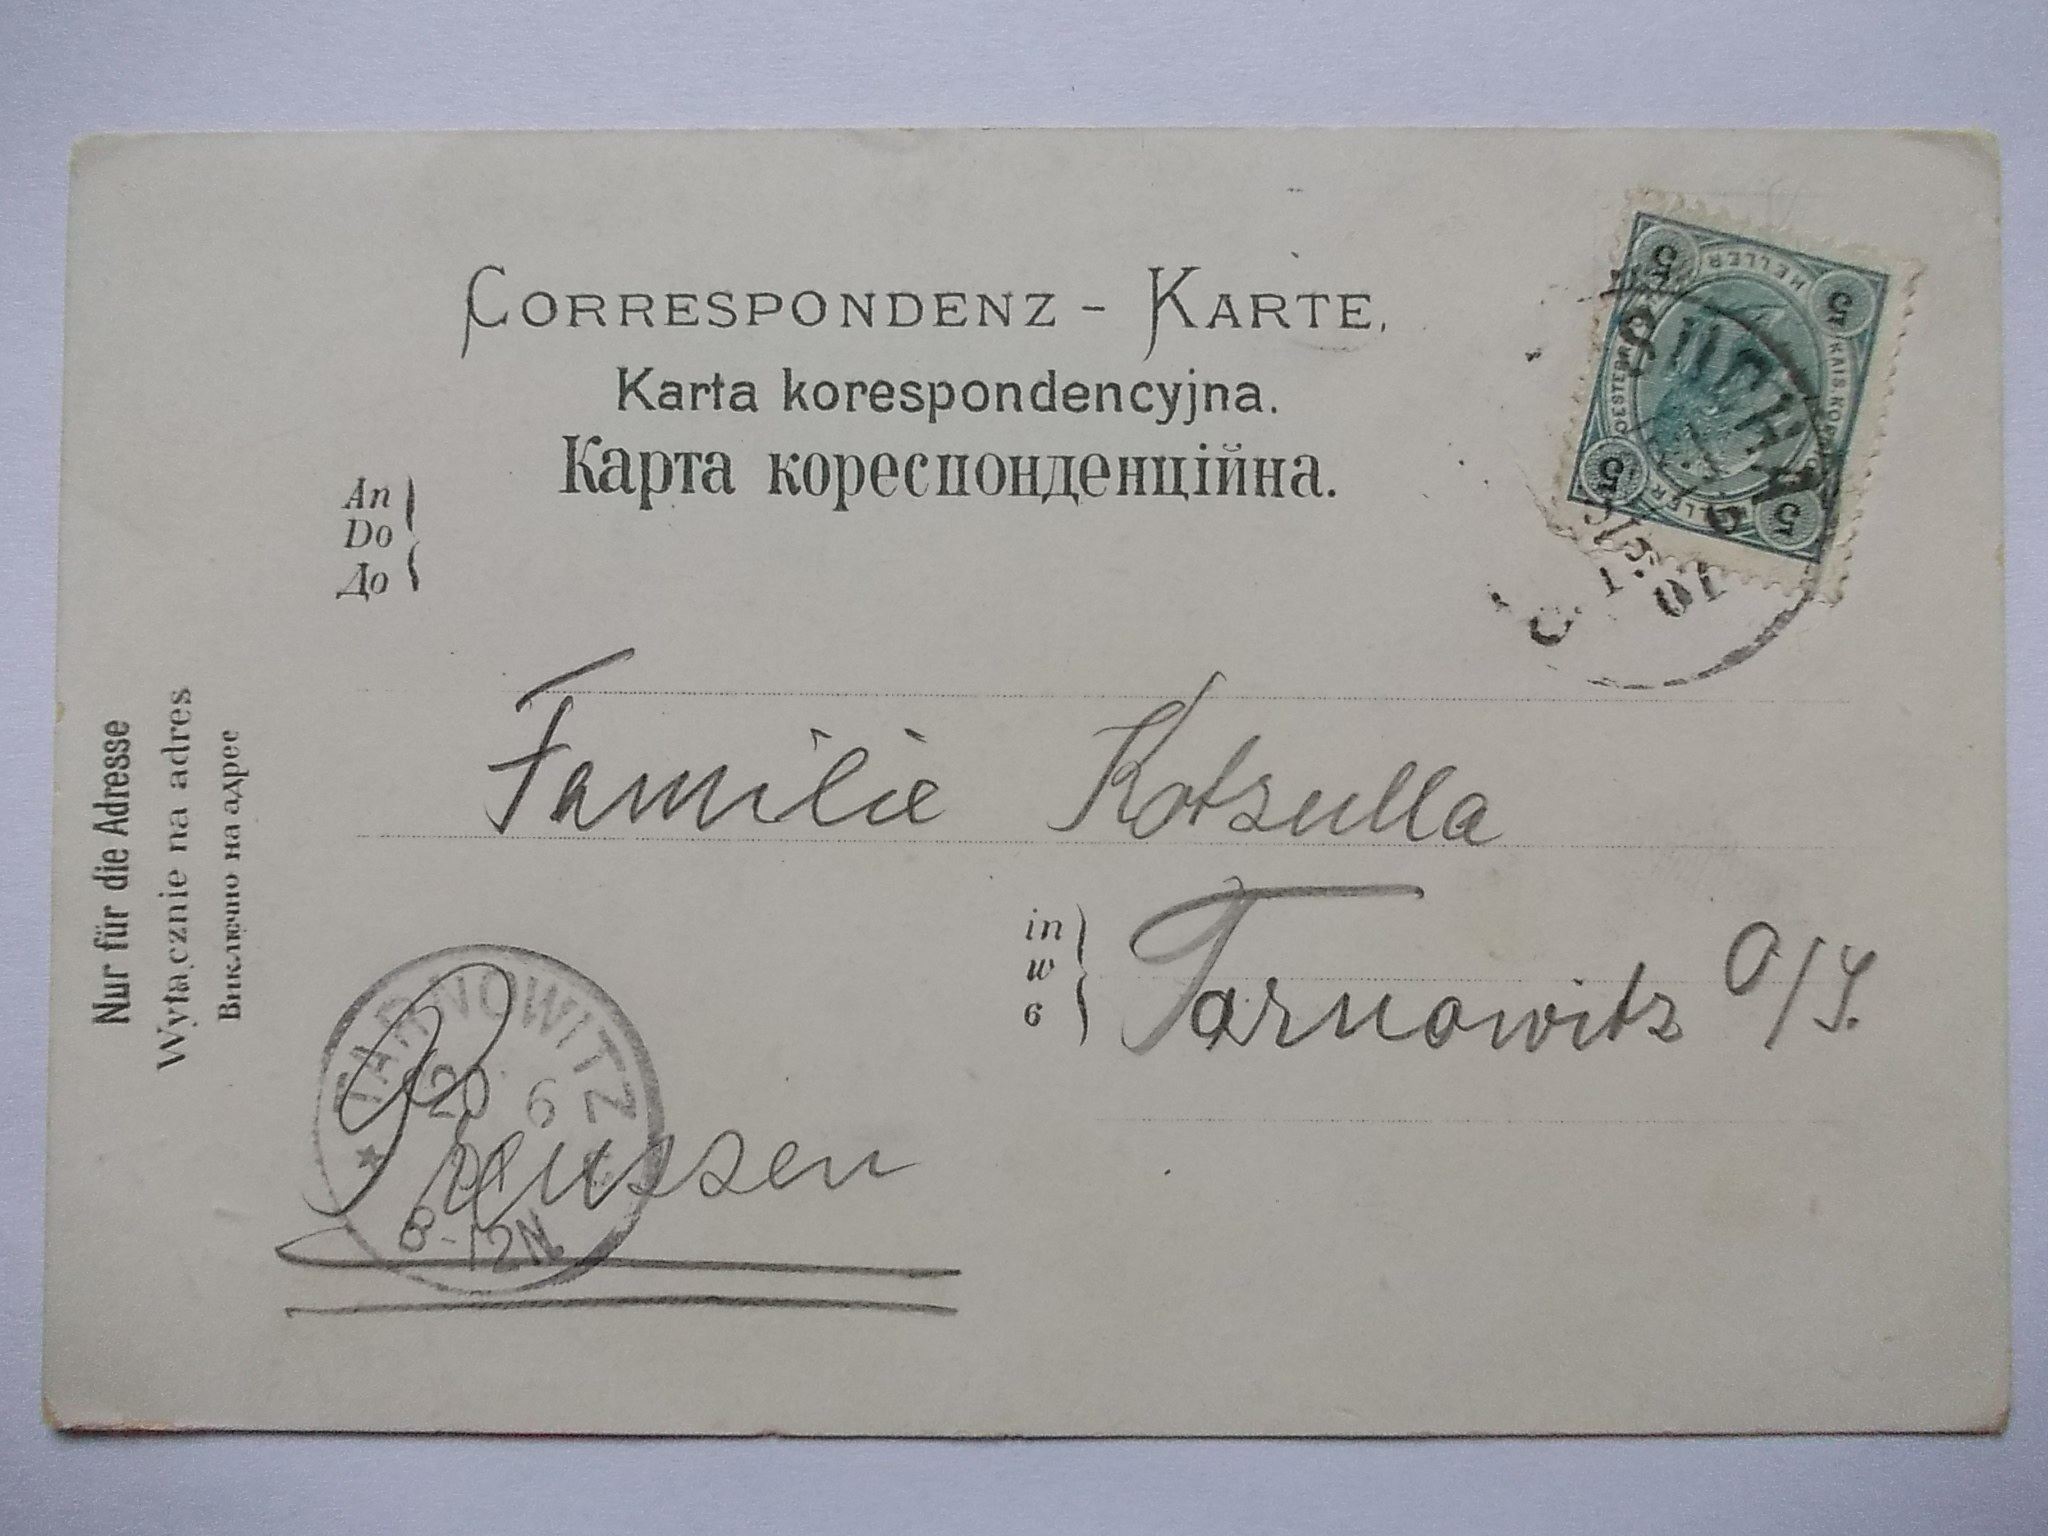 CORRESPONDENZ - KARTE.
Karta korespondencyjna.
Карта кореспонденційна.
An
Do
До
Nur für die Adresse
Wyłącznie na adres
Виключно на адрес
5 HELLER 5
KAIS. KÖNIGL.
OESTERR.
5 HELLER 5
SUCHA
Familie Kotsulla
in
w
в
Tarnowitz O/S.
TARNOWITZ
20 6
01
8-12N
Preussen